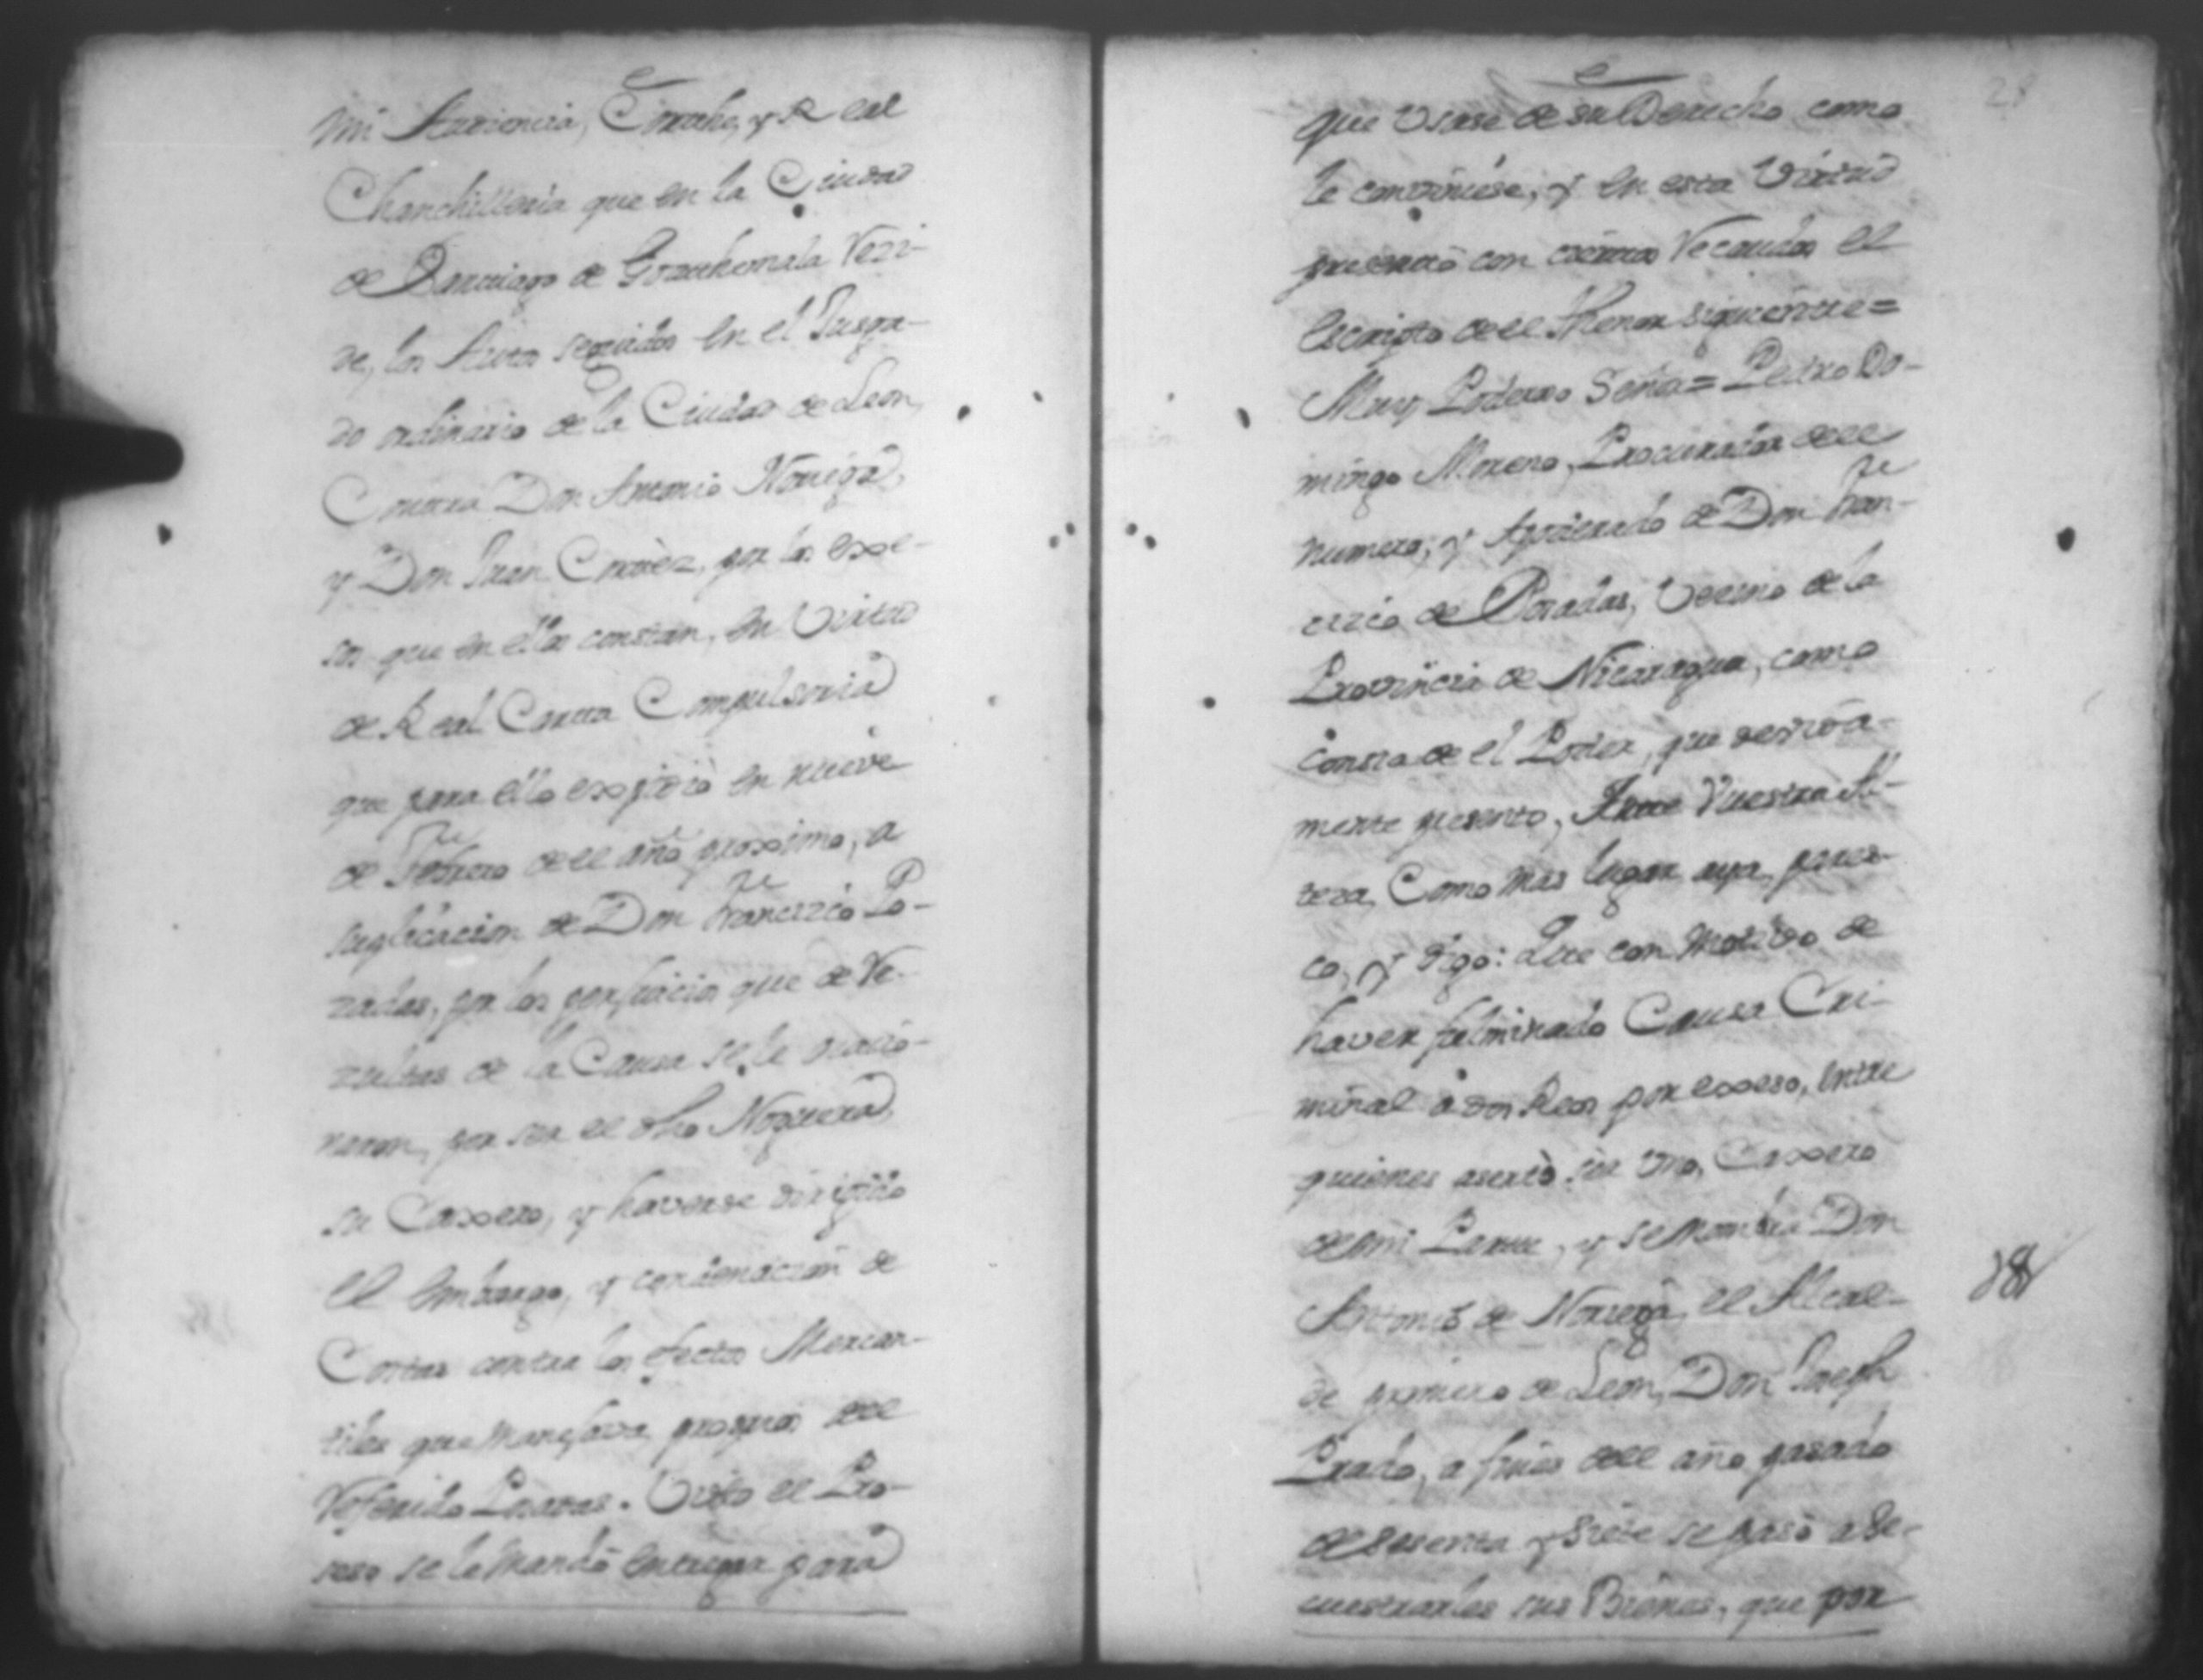 mi Audiencia, Corte, y Real
Chanchilleria que en la Ciudad
de Santiago de Goathemala Resi-
de, los Autos seguidos en el Jusga-
do ordinario de la Ciudad de Leon,
Contra Don Antonio Noriega,
y Don Juan Cortèz, por los exce-
sos que en ellos constan, en Virtud
de Real Carta Compulsoria
que para ello expidiò en nueve
de Febrero de el año proximo, a
suplicacion de Don Francizco Po-
zadas, por los perjuicios que de Re-
zultas de la Causa se le ocacio-
naron, por ser el dho Noguera
su Caxero, y haverse dirigido
el embargo, y condenacion de
Costas contra los efectos Mercan-
tiles que manejava propios del
Referido Pozadas. Visto el Pro-
seso se le mandò entregar para
que Usase de su Derecho como
le conviniese, y en esta Virtud
presentò con ciertos Recaudos el
escripto de el thenor siguiente =
Muy Poderoso Señor = Pedro Do-
mingo Moreno, Procurador de el
numero, y Apoderado de Don Fran-
cizco de Posadas, Vecino de la
Provincia de Nicaragua, como
consta de el Poder, que devida-
mente presento, Ante Vuestra Al-
teza, Como mas lugar aya, pares-
co, y digo: Que con motivo de
haver fulminado Causa Cri-
minal à dos Reos por exceso, entre
quienes asertò ser Uno, Caxero
de mi Parte, y se nombra Don
Antonio de Noriega, el Alcal-
de primero de Leon, Don Joseph
Prado, a fines de el año pasado
de sesenta y siete se pasò a Se-
cuestrarles sus Bienes, que por
28